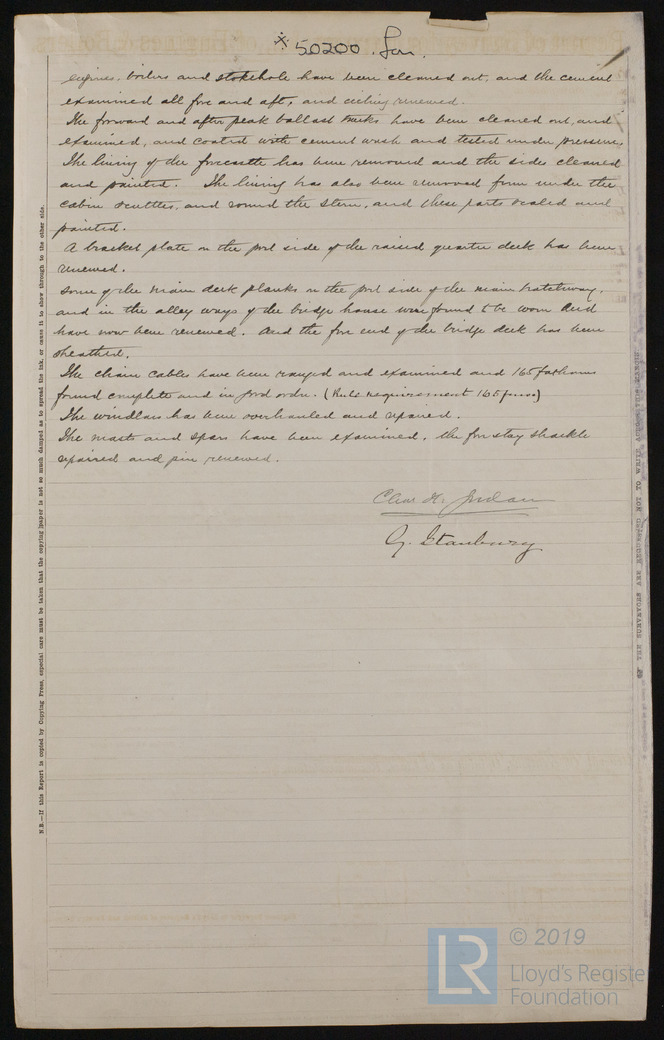 ※ 50200 Lon.
engines, boilers and stokehole have been cleaned out, and the cement
examined all fore and aft, and ceiling renewed.
The forward and after peak ballast tanks have been cleaned out, and
examined, and coated with cement wash and tested under pressure.
The lining of the forecastle has been removed and the sides cleaned
and painted. The lining has also been removed from under the
cabin scuttles, and round the stern, and these parts scaled and
painted.
A bracket plate on the port side of the raised quarter deck has been
renewed.
Some of the main deck planks on the port side of the main hatchway,
and in the alley ways of the bridge house were found to be worn and
have now been renewed. And the fore end of the bridge deck has been
sheathed.
The chain cables have been ranged and examined and 165 fathoms
found complete and in good order. (Rule requirement 165 fms)
The windlass has been overhauled and repaired.
The masts and spars have been examined, the forestay shackle
repaired and pin renewed.
Chas H. Jordan
G. Stanbury
N.B.—If this Report is copied by Copying Press, especial care must be taken that the copying paper is not so much damped as to spread the ink, or cause it to show through to the other side.
THE SURVEYORS ARE REQUESTED NOT TO WRITE ACROSS THIS MARGIN.
LR
© 2019
Lloyd's Register
Foundation